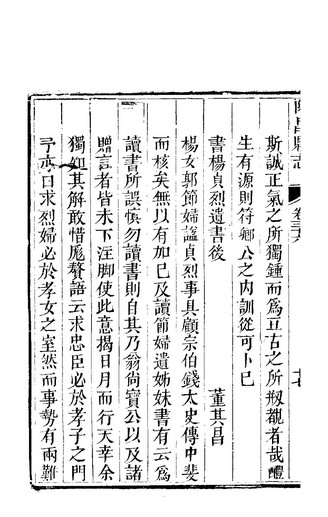 昌縣志
卷
斯誠正氣之所獨鍾而爲亘古之所剏覩者哉醴
生有源則符鄉公之内訓從可卜已
書楊貞烈遺書後
董其昌
楊女郭節婦謚貞烈事具顧宗伯錢太史傳中斐
而核矣無以有加已及讀節婦遺姊妹書有云爲
讀書所誤慎勿讀書則自其乃翁尚寶公以及諸
贈言者皆未下注脚使此意揭日月而行天幸余
獨知其解敢惜厖贅語云求忠臣必於孝子之門
予亦曰求烈婦必於孝女之室然而事勢有兩難